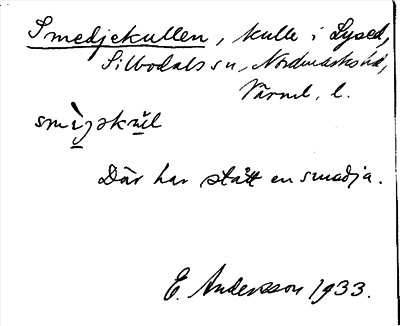 Smedjekullen, kulle i Lysed,
Silbodals sn, Nordmarks hd,
Värml. l.
Där har stått en smedja.
E. Andersson 1933.